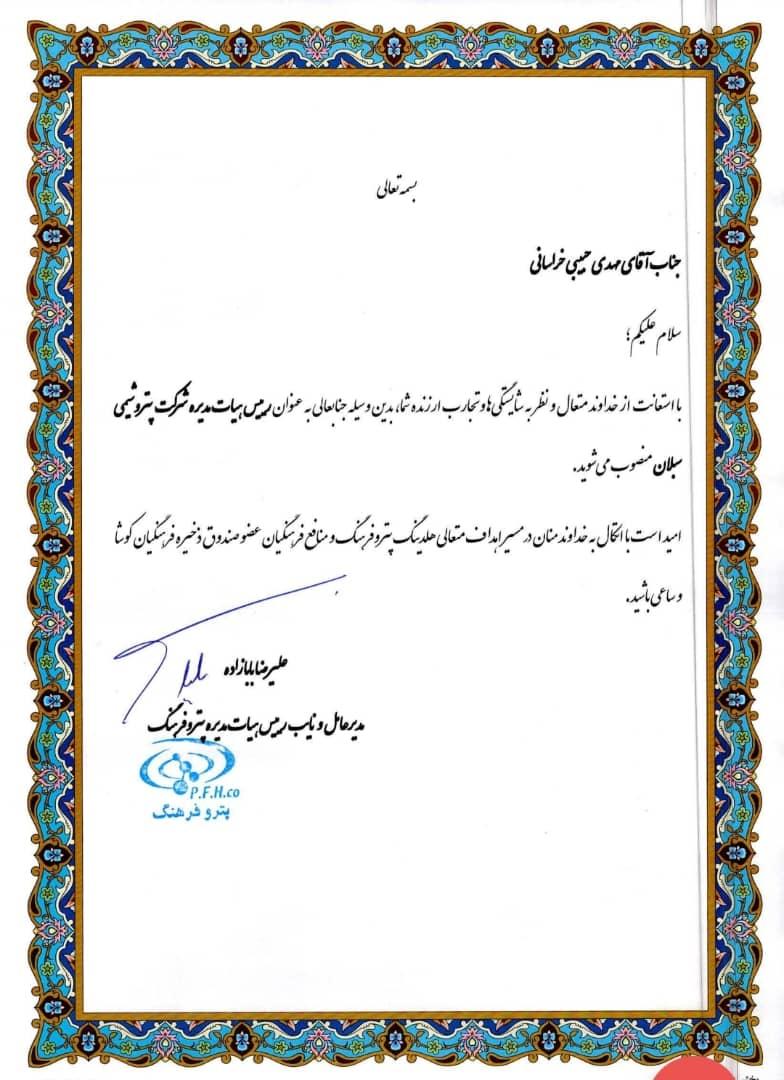 بسمه تعالی
جناب آقای مهدی حبیبی خراسانی
سلام علیکم؛
با استعانت از خداوند متعال و نظر به شایستگی‌ها و تجارب ارزنده شما، بدین وسیله جنابعالی به عنوان رییس هیات مدیره شرکت پتروشیمی
سبلان منصوب می‌شوید.
امید است با اتکال به خداوند منان در مسیر اهداف متعالی هلدینگ پتروفرهنگ و منافع فرهنگیان عضو صندوق ذخیره فرهنگیان کوشا
و ساعی باشید.
علیرضا بابازاده
مدیرعامل و نایب رییس هیات مدیره پتروفرهنگ
P.F.H.co
پترو فرهنگ